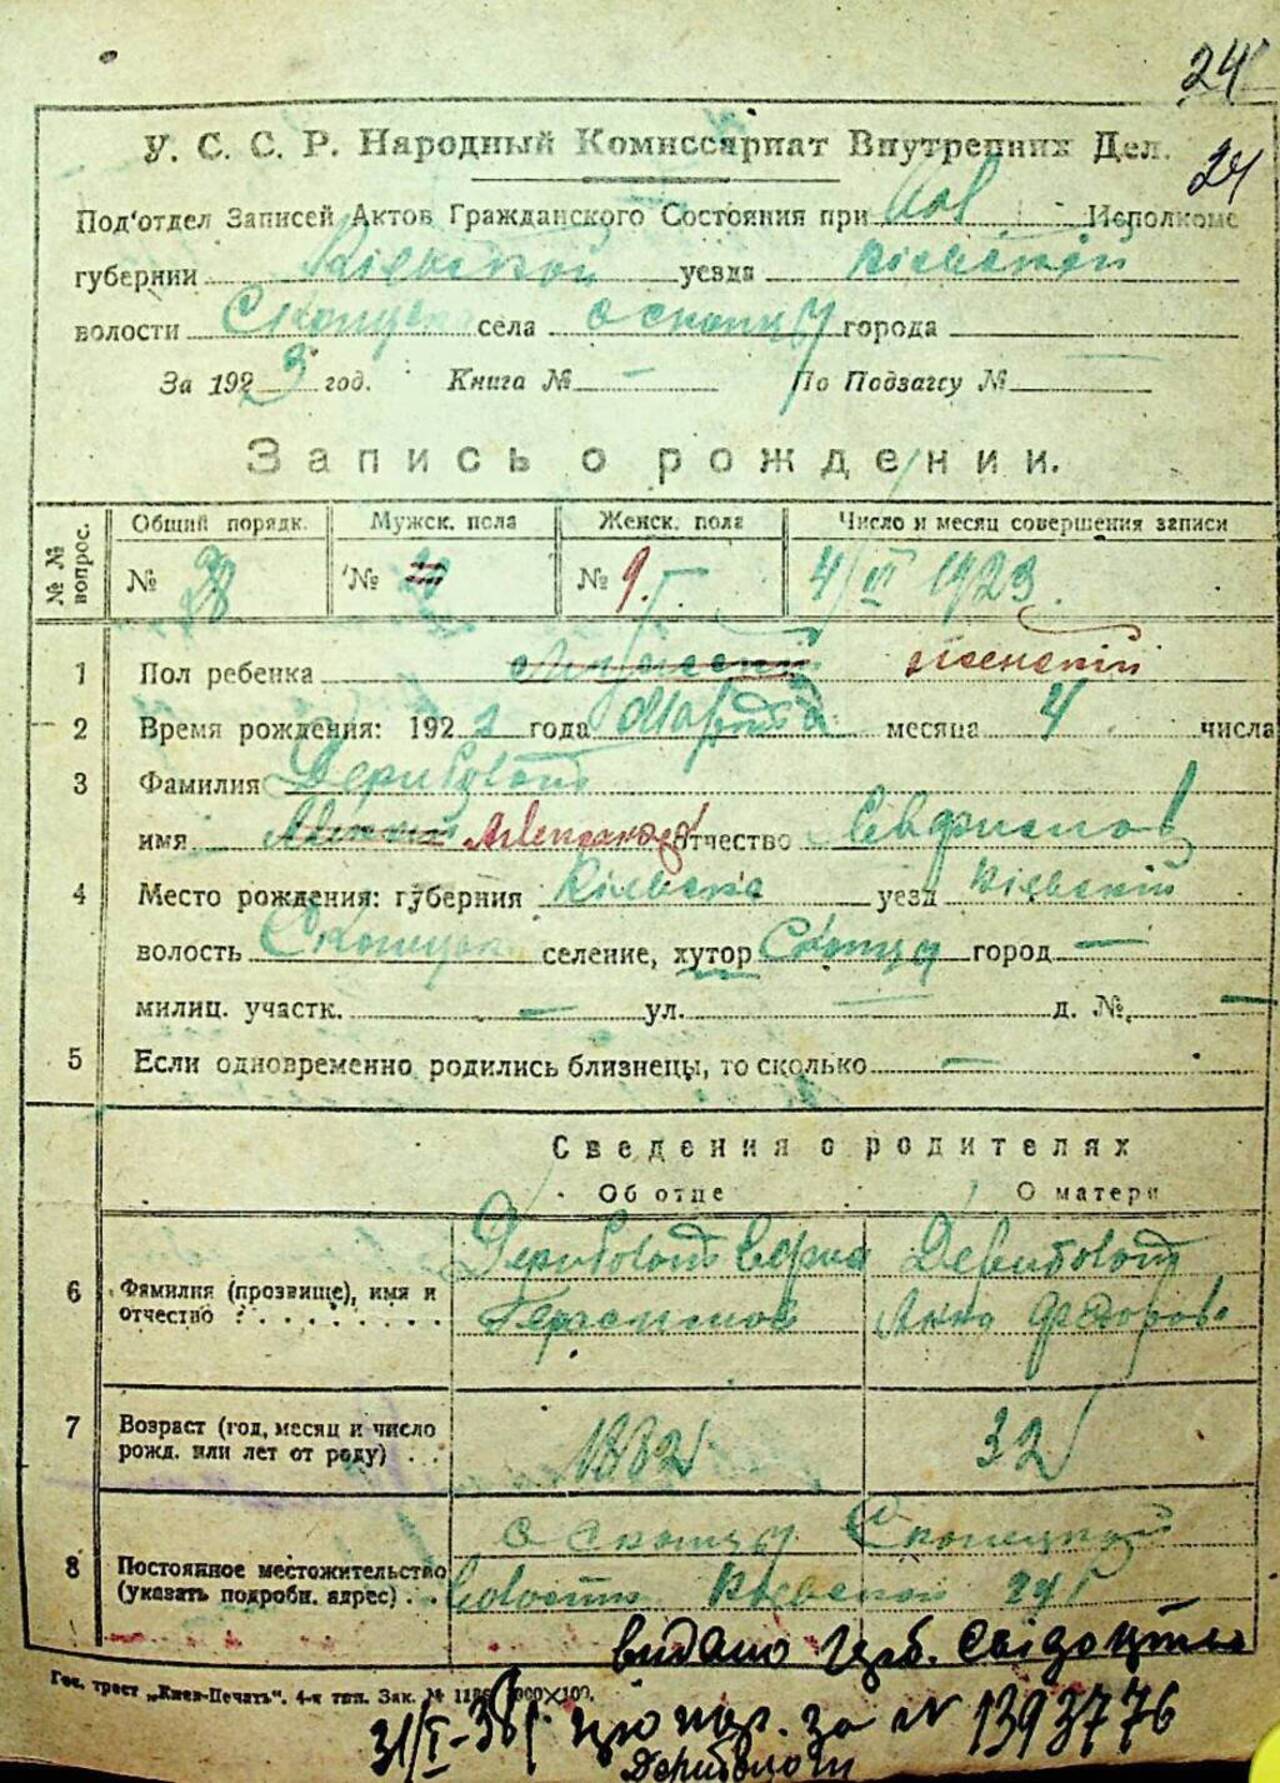 24
У. С. С. Р. Народный Комиссариат Внутренних Дел.
24
Под'отдел Записей Актов Гражданского Состояния при Исполкоме
губернии Киевской уезда Киевский
волости села с Скопцы города —
За 1923 год. Книга № — По Подзагсу №
Запись о рождении.
№ № вопрос. Общий порядк. Мужск. пола Женск. пола Число и месяц совершения записи
№ 28 № № 9 4/VI 1923
1 Пол ребенка женский
2 Время рождения: 1923 года месяца 4 числа
3 Фамилия Дериболот
имя Александр отчество
4 Место рождения: губерния Киевска уезд Киевский
волость селение, хутор Скопцы город —
милиц. участк. — ул. — д. №. —
5 Если одновременно родились близнецы, то сколько —
Сведения о родителях
Об отце О матери
6 Фамилия (прозвище), имя и отчество Дериболот Дериболот
Герасимов Анна Федоров
7 Возраст (год, месяц и число рожд. или лет от роду) 1882 32
8 Постоянное местожительство (указать подробн. адрес) с Скопцы Скопецкой
волости Киевской
видано свідоцтво
Гос. трест „Киев-Печать“. 4-я тип. Зак. №
31/I-38 р. про нар. за № 1393776
Дериболот